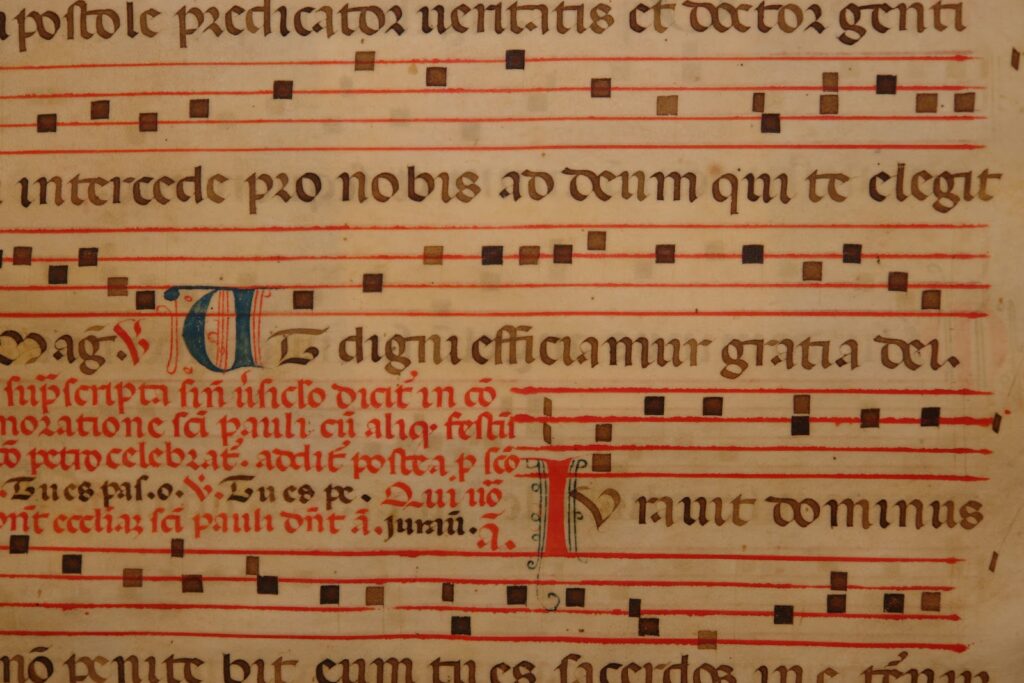 apostole predicator ueritatis et doctor genti
intercede pro nobis ad deum qui te elegit
Mag̃. V̆ UT digni efficiamur gratia dei.
sup̃scripta sin̄ ũsiclo dicit̃ in cō
moratione sc̄i pauli cū aliq. festū
cō petro celebrat̃. addit̃ postea p sc̄o
.Tu es pas.o. V̆. Tu es pe. Qui uō
sc̄i pauli dn̄t ā. Juraū. ā.
IV rauit dominus
nō penite bit eum tu es sacerdos in e tẽrnum